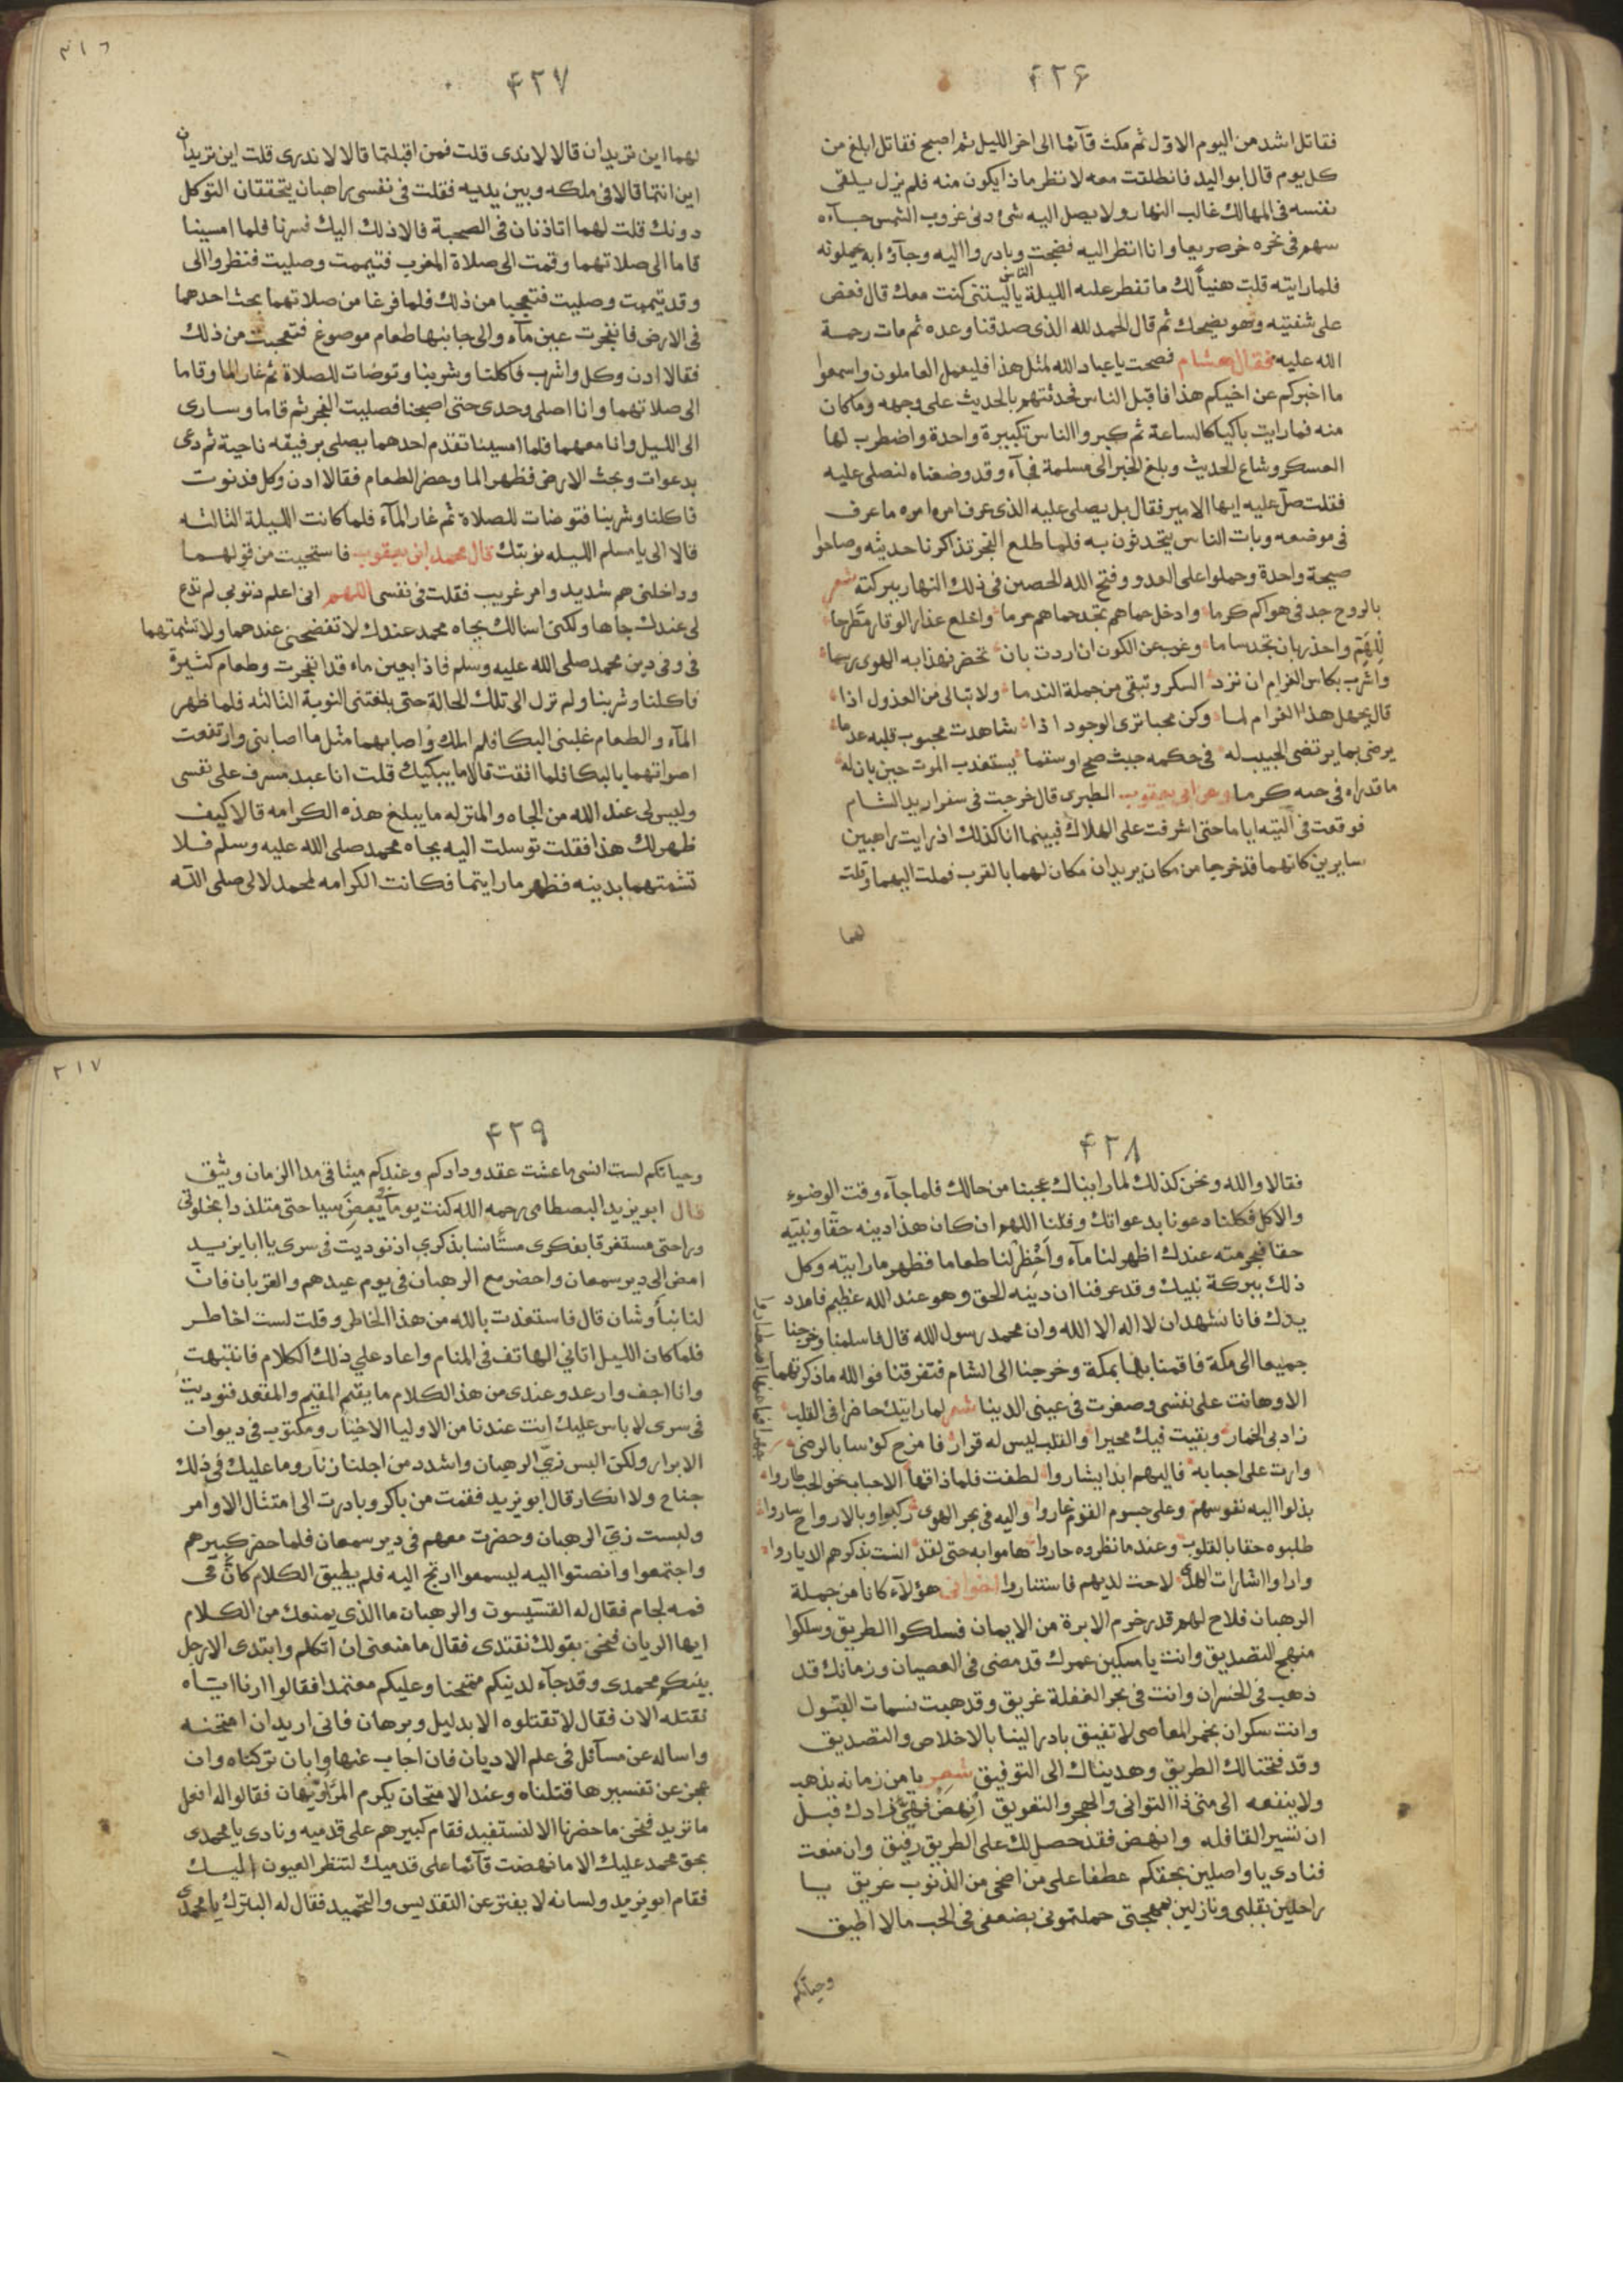 ۴۲۶
فقاتل اشد من اليوم الاول ثم مكث قآئما الى اخر الليل ثم اصبح فقاتل ابلغ من
كل يوم قال ابو اليد فانطلقت معه لانظر ماذا يكون منه فلم يزل يلقى
نفسه فى المهالك غالب النهار ولا يصل اليه شئ دنى غروب الشمس جآءه
سهم فى نحره خر صريعا وانا انظر اليه فضجت الناس وبادروا اليه وجآؤا به يحملونه
فلما رايته قلت هنيأ لك ما تفطر عليه الليلة ياليتنى كنت معك قال فعض
على شفتيه وهو يضحك ثم قال الحمد لله الذى صدقنا وعده ثم مات رحمة
الله عليه فقال هشام فصحت يا عباد الله لمثل هذا فليعمل العاملون واسمعوا
ما اخبركم عن اخيكم هذا فاقبل الناس فحدثتهم بالحديث على وجهه وماكان
منه فما رايت باكيا كالساعة ثم كبروا الناس تكبيرة واحدة واضطرب لها
العسكر وشاع الحديث وبلغ الخبر الى مسلمة فجآء وقد وضعناه لنصلى عليه
فقلت صل عليه ايها الامير فقال بل يصلى عليه الذى عرف من امره ما عرف
فى موضعه وبات الناس يتحدثون به فلما طلع الفجر تذاكرنا حديثه وصاحوا
صيحة واحدة وحملوا على العدو وفتح الله الحصين فى ذلك النهار ببركته شعر
بالروح جد فى هواكم كرما وادخل حماهم تجد حماهم حرما واخلع عذار الوقار مطرحا
للهم واحذر بان تجد ساما وغب عن الكون ان اردت بان تحضر فهذا به الهوى رسما
واشرب بكاس الغرام ان تزد السكر وتبقى من جملة الندما ولا تبالى من العذول اذا
قال بجهل هذا الغرام لما وكن محبا ترى الوجود اذا شاهدت محبوب قلبه عدما
يرضى بما يرتضى الحبيب له فى حكمه حيث صح او سقما يستعذب الموت حين بان له
ما قد راه فى حبه كرما وعن ابى يعقوب الطبرى قال خرجت فى سفر اريد الشام
فوقعت فى التيه اياما حتى اشرفت على الهلاك فبينما انا كذلك اذ رايت راهبين
سايرين كانهما قد خرجا من مكان يريدان مكان لهما بالقرب فملت اليهما وقلت
لهما
٣١٦
۴۲۷
لهما اين تريدان قالا لا ندى قلت فمن اقبلتما قالا لا ندرى قلت اين تريدان
اين انتما قالا فى ملكه وبين يديه فقلت فى نفسى راهبان يتحققان التوكل
دونك قلت لهما اتاذنان فى الصحبة قالا ذلك اليك فسرنا فلما امسينا
قاما الى صلاتهما وقمت الى صلاة المغرب فتيممت وصليت فنظروا الى
وقد تيممت وصليت فتعجبا من ذلك فلما فرغا من صلاتهما بحث احدهما
فى الارض فانفجرت عين مآء والى جانبها طعام موصوغ فتعجبت من ذلك
فقالا ادن وكل واشرب فاكلنا وشربنا وتوضات للصلاة ثم غار الما وقاما
الى صلاتهما وانا اصلى وحدى حتى اصبحنا فصليت الفجر ثم قاما وسارى
الى الليل وانا معهما فلما امسينا تقدم احدهما يصلى برفيقه ناحية ثم دعى
بدعوات وبحث الارض فظهر الما وحضر الطعام فقالا ادن وكل فدنوت
فاكلنا وشربنا فتوضات للصلاة ثم غار المآء فلما كانت الليلة الثالثه
قالا الى يا مسلم الليله نوبتك قال محمد ابن يعقوب فاستحييت من قولهما
وداخلنى هم شديد وامر غريب فقلت فى نفسى اللهم انى اعلم ذنوبى لم تدع
لى عندك جاها ولكن اسالك بجاه محمد عندك لا تفضحنى عندهما ولا تشمتهما
فى وفى دين محمد صلى الله عليه وسلم فاذا بعين ماء قد انفجرت وطعام كثيرة
فاكلنا وشربنا ولم نزل الى تلك الحالة حتى بلغتنى النوبة الثالثه فلما ظهر
المآء والطعام غلبنى البكا فلم املك واصابهما مثل ما اصابنى وارتفعت
اصواتهما بالبكا فلما افقت قالا ما يبكيك قلت انا عبد مسرف على نفسى
وليس لى عند الله من الجاه والمنزله ما يبلغ هذه الكرامه قالا كيف
ظهر لك هذا فقلت توسلت اليه بجاه محمد صلى الله عليه وسلم فلا
تشمتهما بدينه فظهر ما رايتما فكانت الكرامه لمحمد لا لى صلى الله
۴۲۸
فقالا والله ونحن كذلك لما رايناك عجبنا من حالك فلما جآء وقت الوضوء
والاكل فكلنا دعونا بدعواتك وقلنا اللهم ان كان هذا دينه حقا ونبيه
حقا فبحرمته عندك اظهر لنا مآء واحضر لنا طعاما فظهر ما رايته وكل
ذلك ببركة نبيك وقد عرفنا ان دينه الحق وهو عند الله عظيم فامدد
يدك فانا نشهد ان لا اله الا الله وان محمد رسول الله قال فاسلمنا وخرجنا
جميعا الى مكة فاقمنا بها بمكة وخرجنا الى الشام فتفرقنا فوالله ما ذكرتهما
الا وهانت على نفسى وصغرت فى عينى الدينا شعر لما رايتك حاضرا فى القلب
زاد بى الخمار وبقيت فيك محيرا والقلب ليس له قرار فامزح كوسا بالرضى
وارت على احبابه فاليهم ابدا يشاروا لطفت فلما ذاقها الاحباب نحو الحب طاروا
بذلوا اليه نفوسهم وعلى جسوم القوم غاروا واليه فى بحر الهوى ركبوا وبالارواح ساروا
طلبوه حقا بالقلوب وعند ما نظروه حاروا هاموا به حتى لقد انست بذكرهم الديار
واراوا اشارات الهدى لاحت لديهم فاستناروا اخوانى هؤلآء كانا من جملة
الرهبان فلاح لهم قدر خرم الابرة من الايمان فسلكوا الطريق وسلكوا
منهج التصديق وانت يا مسكين عمرك قد مضى فى العصيان وزمانك قد
ذهب فى الخسران وانت فى بحر الغفلة غريق وقد هبت نسمات القبول
وانت سكران بخمر المعاصى لا تفيق بادر الينا بالاخلاص والتصديق
وقد فتحنا لك الطريق وهديناك الى التوفيق شعر يا من زمانه يذهب
ولا ينفعه الى متى ذا التوانى والهجر والتعويق انهض فهيئ زادك قبل
ان تسير القافله وانهض فقد حصل لك على الطريق رفيق وان منعت
فنادى يا واصلين بحقكم عطفا على من اضحى من الذنوب غريق يا
راحلين بقلبى ونازلين بمهجتى حملتمونى بضعفى فى الحب مالا اطيق
وحياتكم
٣١٧
۴۲۹
وحياتكم لست انسى ما عشت عقد ودادكم وعندكم ميثاقى مدا الزمان وثيق
قال ابو يزيد البصطامى رحمه الله كنت يوما فى بعض سياحتى متلذذا بخلوتى
وراحتى مستغرقا بفكرى مستأنسا بذكرى اذ نوديت فى سرى يا ابا يزيد
امض الى دير سمعان واحضر مع الرهبان فى يوم عيدهم والقربان فان
لنا نبأ وشان قال فاستعذت بالله من هذا الخاطر وقلت لست اخاطر
فلما كان الليل اتانى الهاتف فى المنام واعاد على ذلك الكلام فانتبهت
وانا اجف وارعد وعندى من هذ الكلام ما يقيم المقيم والمقعد فنوديت
فى سرى لا باس عليك انت عندنا من الاوليا الاخيار ومكتوب فى ديوان
الابرار ولكن البس زى الرهبان واشدد من اجلنا زنار وما عليك فى ذلك
جناح ولا انكار قال ابو يزيد فقمت من باكر وبادرت الى امتثال الاوامر
ولبست زى الرهبان وحضرت معهم فى دير سمعان فلما حضر كبيرهم
واجتمعوا وانصتوا اليه ليسمعوا ارتج اليه فلم يطيق الكلام كان فى
فمه لجام فقال له القسيسون والرهبان ما الذى يمنعك من الكلام
ايها الريان فنحن بقولك نقتدى فقال ما منعنى ان اتكلم وابتدى الا رجل
بينكم محمدى وقد جآء لدينكم ممتحنا وعليكم معتمدا فقالوا ارنا اياه
نقتله الان فقال لا تقتلوه الا بدليل وبرهان فانى اريد ان امتحنه
واساله عن مسآئل فى علم الاديان فان اجاب عنها وابان تركناه وان
عجز عن تفسيرها قتلناه وعند الامتحان يكرم المرؤ ويهان فقالوا له افعل
ما تريد فنحن ما حضرنا الا لنستفيد فقام كبيرهم على قدميه ونادى يا محمدى
بحق محمد عليك الا ما نهضت قآئما على قدميك لتنظر العيون اليك
فقام ابو يزيد ولسانه لا يفتر عن التقديس والتحميد فقال له البترك يا محمدى